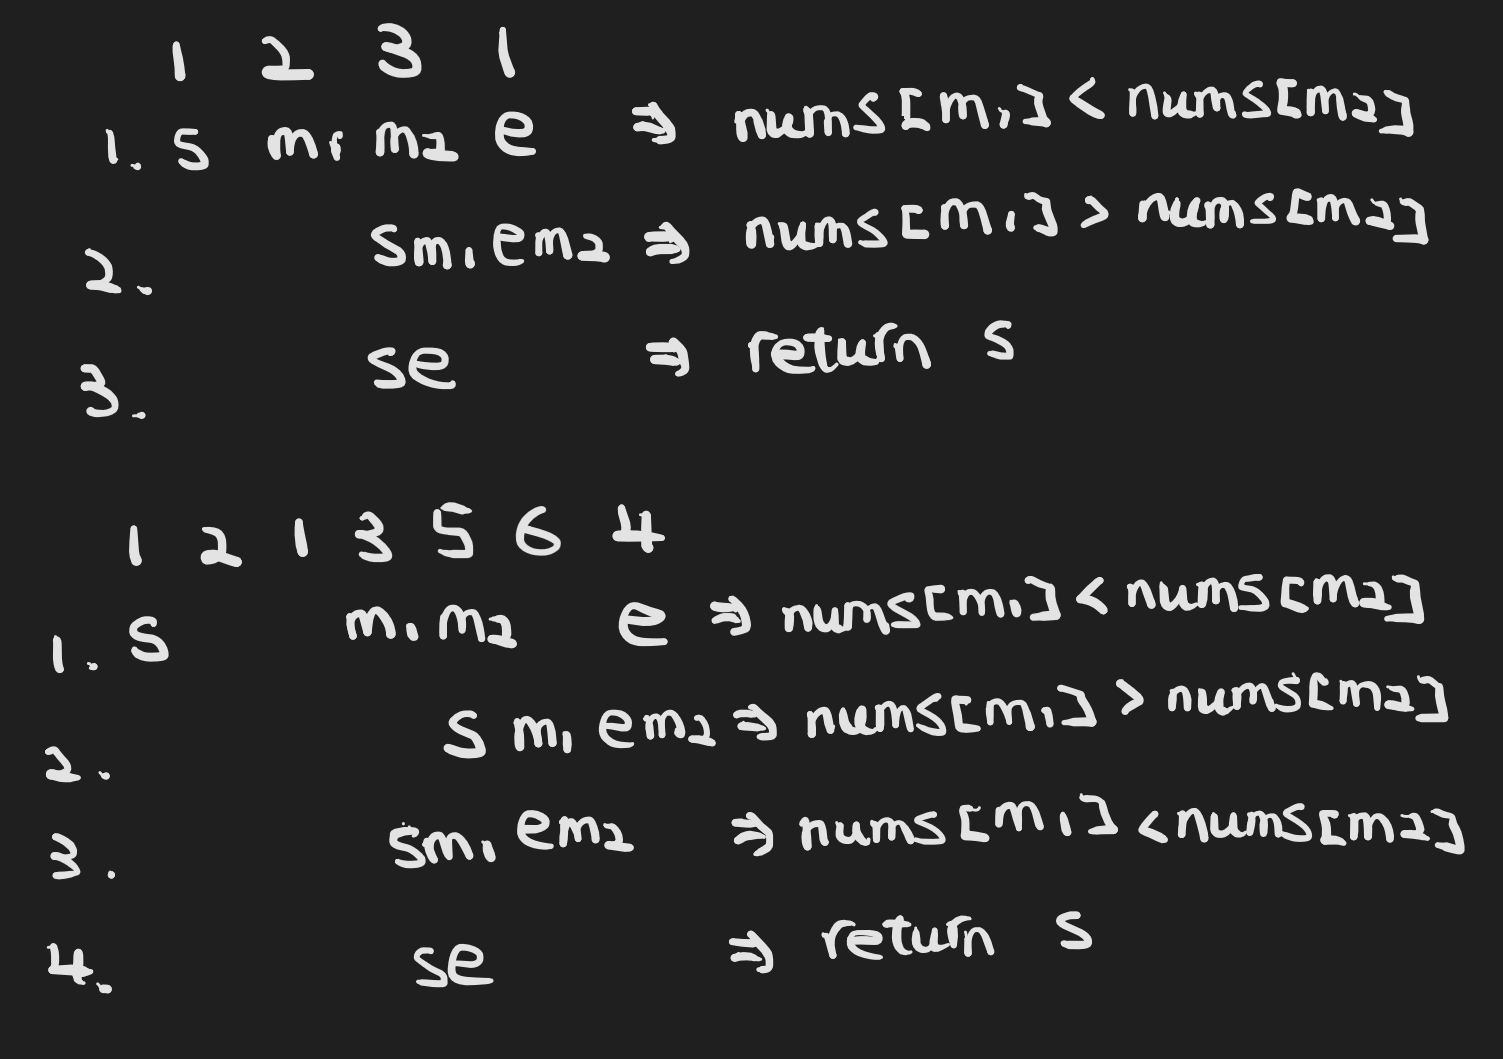 1 2 3 1
1. s m1 m2 e ⇒ nums[m1] < nums[m2]
2. s m1 e m2 ⇒ nums[m1] > nums[m2]
3. s e ⇒ return s
1 2 1 3 5 6 4
1. s m1 m2 e ⇒ nums[m1] < nums[m2]
2. s m1 e m2 ⇒ nums[m1] > nums[m2]
3. s m1 e m2 ⇒ nums[m1] < nums[m2]
4. s e ⇒ return s